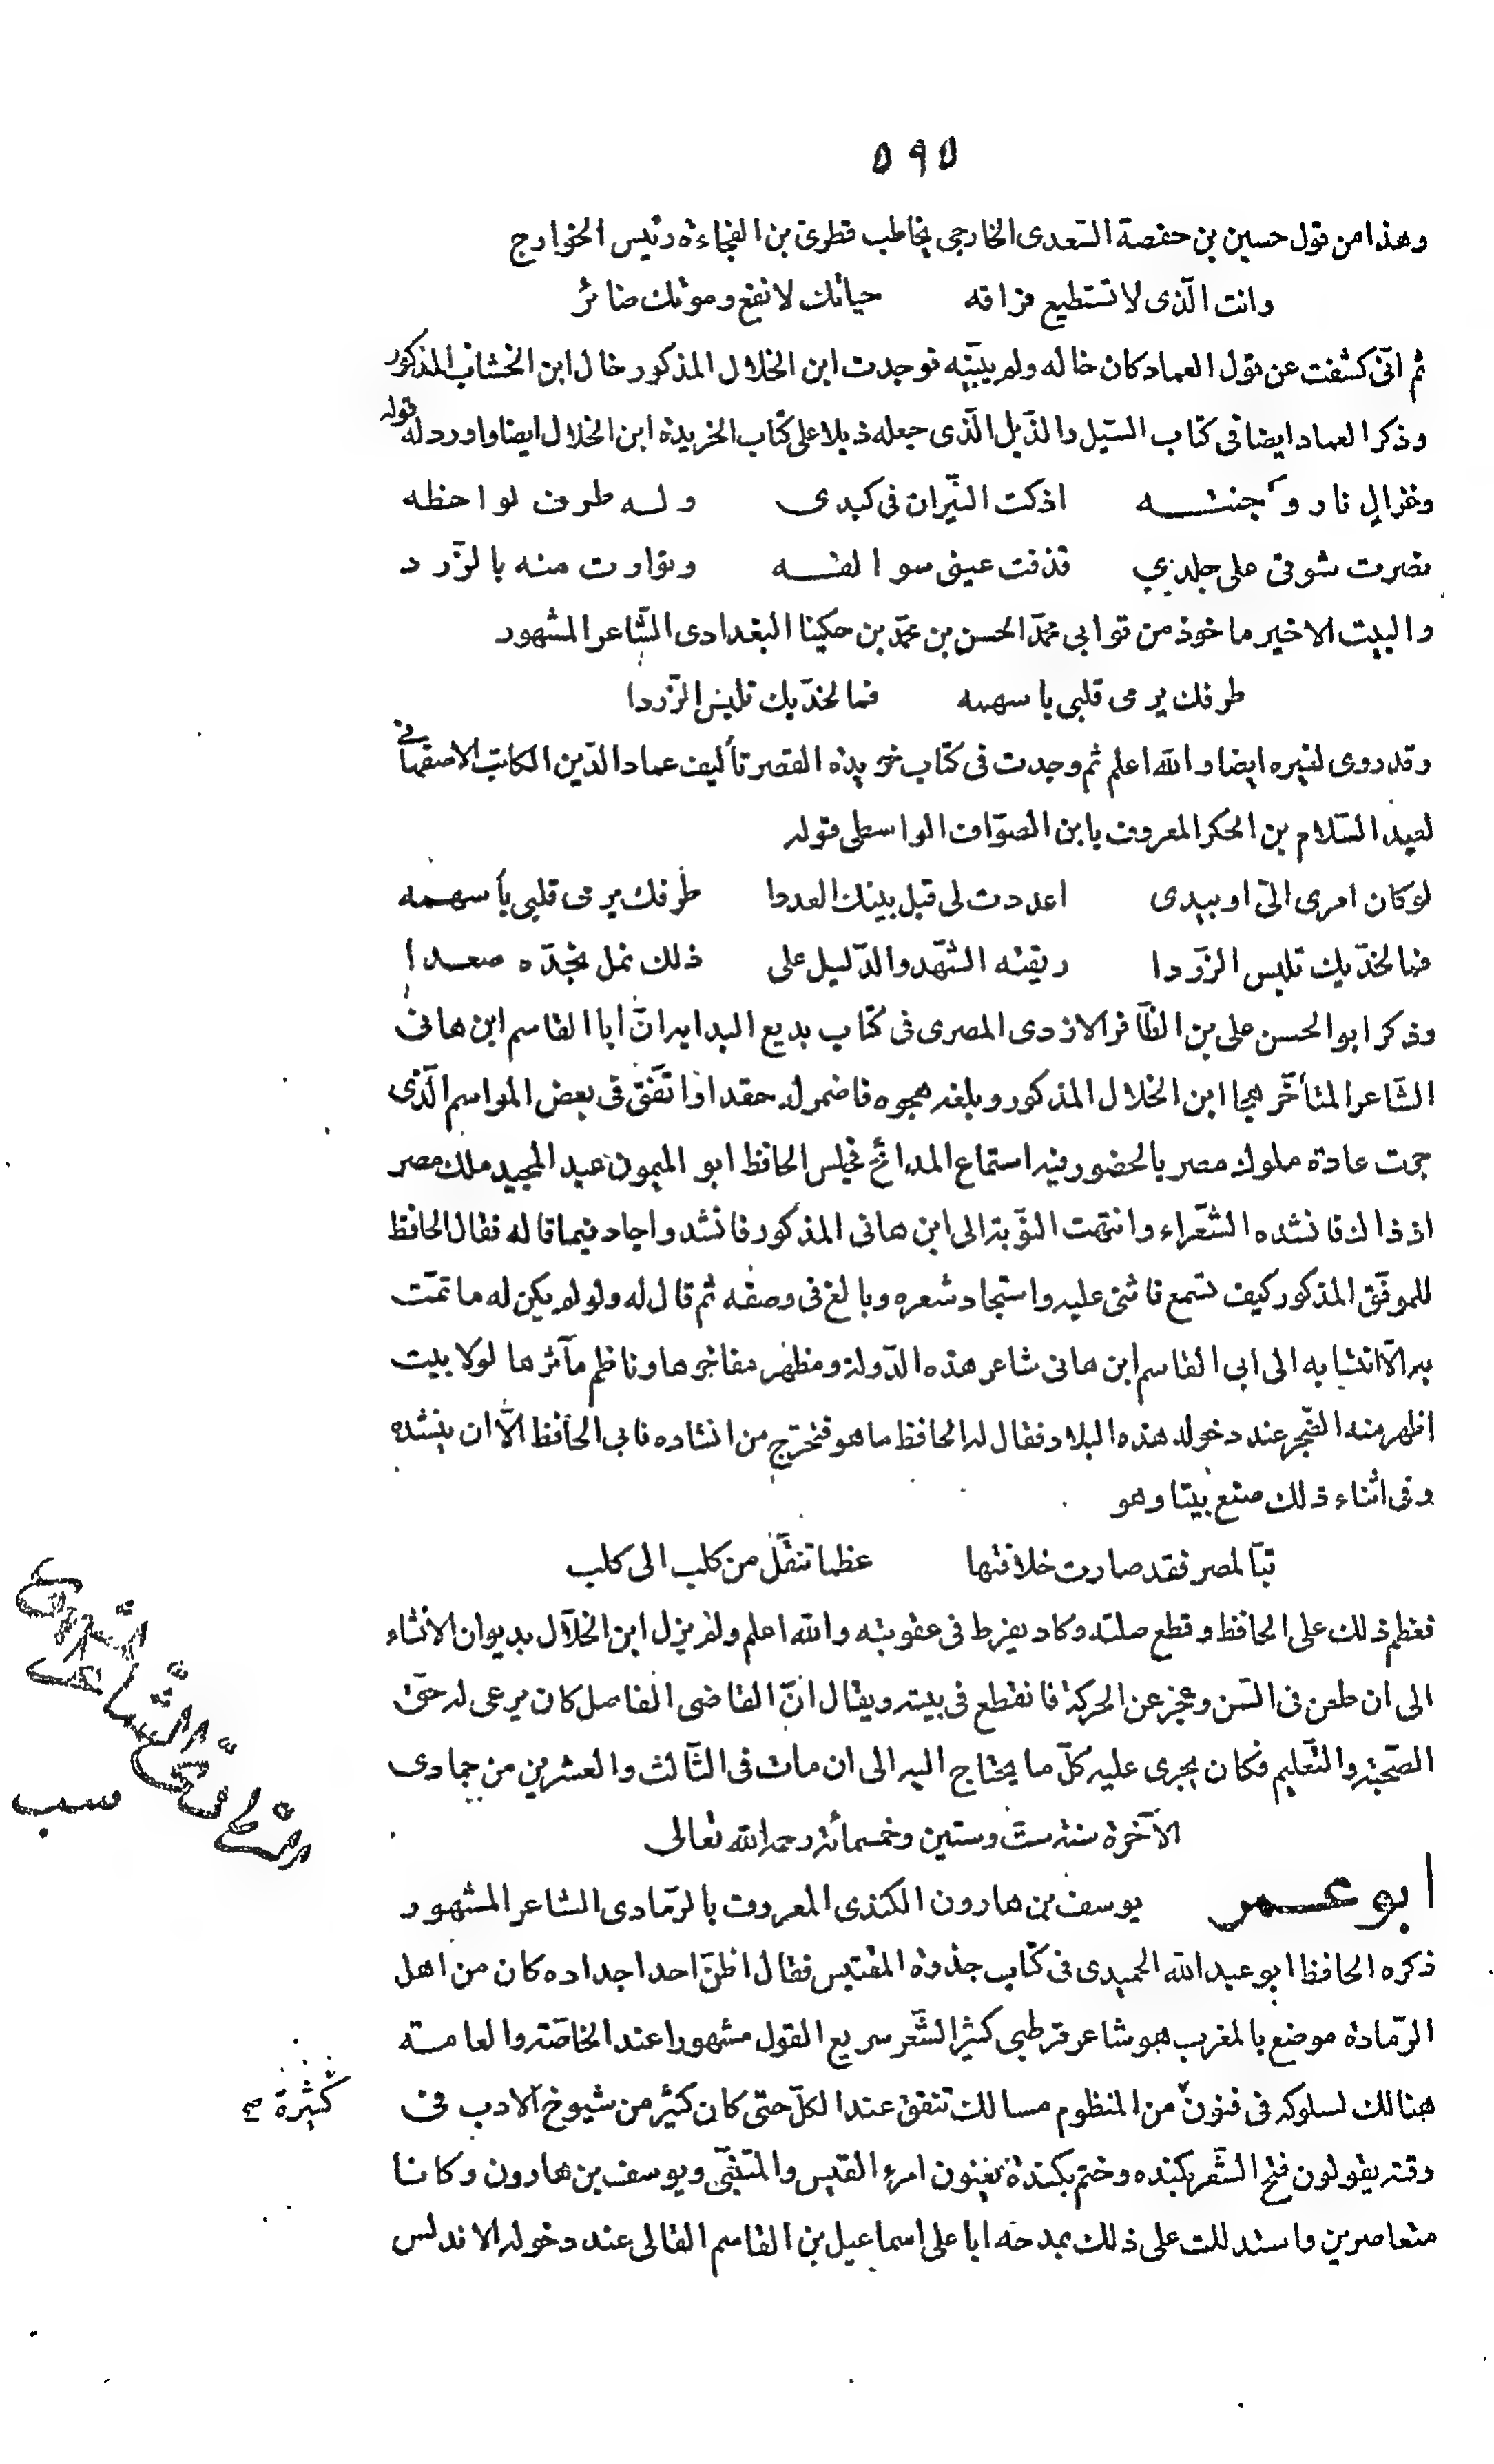 ٥٩٥
وهذا من قول حسين بن حفصة السّعدى الخارجى يخاطب قطرىّ بن الفجاءة رئيس الخوارج
وانت الّذى لا تستطيع فراقه حياتك لا نفع وموتك ضائر
ثم انّى كشفت عن قول العماد كان خاله ولم يبيّنه فوجدت ابن الخلال المذكور خال ابن الخشاب المذكور
وذكر العماد ايضا فى كتاب السّيل والذّيل الّذى جعله ذيلا على كتاب الخريدة ابن الخلال ايضا واورد له قوله
وغزالٍ نار وجنته اذكت النّيران فى كبدى وله طرف لواحظه
نصرت شوقى على جلدى قذفت عينى سوالفه وتوارت منه بالزّرد
والبيت الاخير ماخوذ من قو ابى محمّد الحسن بن محمّد بن حكينا البغدادى الشّاعر المشهور
طرفك يرمى قلبى باسهمه فما لخدّيك تلبس الزّردا
وقد روى لغيره ايضا والله اعلم ثم وجدت فى كتاب خريدة القصر تأليف عماد الدّين الكاتب الاصفهانى
لعبد السّلام بن الحكر المعروف بابن الصوّاف الواسطى قوله
لو كان امرى الىّ او بيدى اعددت لى قبل بينك العددا طرفك يرمى قلبى بأسهمه
فما لخدّيك تلبس الزّردا ريقته الشّهد والدّليل على ذلك نمل بخدّه صعدا
وذكر ابو الحسن على بن الظّافر الازدى المصرى فى كتاب بديع البدايه انّ ابا القاسم ابن هانى
الشّاعر المتأخّر هجا ابن الخلال المذكور وبلغه هجوه فاضمر له حقدا واتّفق فى بعض المواسم الّذى
جرت عادة ملوك مصر بالحضور فيه استماع المدائح فجلس الحافظ ابو الميمون عبد المجيد ملك مصر
اذ ذاك فانشده الشّعراء وانتهت النّوبة الى ابن هانى المذكور فانشد واجاد فيما قاله فقال الحافظ
للموفّق المذكور كيف تسمع فاثنى عليه واستجاد شعره وبالغ فى وصفه ثم قال له ولو لم يكن له ما تمّت
به الّا انتسابه الى ابى القاسم ابن هانى شاعر هذه الدّولة ومظهر مفاخرها وناظم مآثرها لولا بيت
اظهر منه الضّجر عند دخوله هذه البلاد فقال له الحافظ ما هو فتحرّج من انشاده فابى الحافظ الّا ان ينشده
وفى اثناء ذلك صنع بيتا وهو
تبّا لمصر فقد صارت خلافتها عظما تنقّل من كلب الى كلب
فعظم ذلك على الحافظ وقطع صلته وكاد يفرط فى عقوبته والله اعلم ولم يزل ابن الخلّال بديوان الانشاء
الى ان طعن فى السّن وعجز عن الحركة فانقطع فى بيته ويقال انّ القاضى الفاصل كان يرعى له حقّ
الصّحبة والتّعليم فكان يجرى عليه كلّ ما يحتاج اليه الى ان مات فى الثّالث والعشرين من جمادى
الآخرة سنة ستّ وستين وخمسمائة رحمه الله تعالى
سب
ابو عمر يوسف بن هارون الكندى المعروف بالرّمادى الشاعر المشهور
ذكره الحافظ ابو عبد الله الحميدى فى كتاب جذوة المقتبس فقال اظنّ احد اجداده كان من اهل
الرّمادة موضع بالمغرب هو شاعر قرطبى كثير الشّعر سريع القول مشهورا عند الخاصّة والعامة
هنالك لسلوكه فى فنون من المنظوم مسالك تنفق عند الكلّ حتى كان كثير من شيوخ الادب فى
كثيرة صح
وقته يقولون فتح الشّعر بكنده وختم بكندة يعنون امرء القيس والمتنبّى ويوسف بن هارون وكانا
متعاصرين واستدللت على ذلك بمدحه ابا على اسماعيل بن القاسم القالى عند دخوله الاندلس